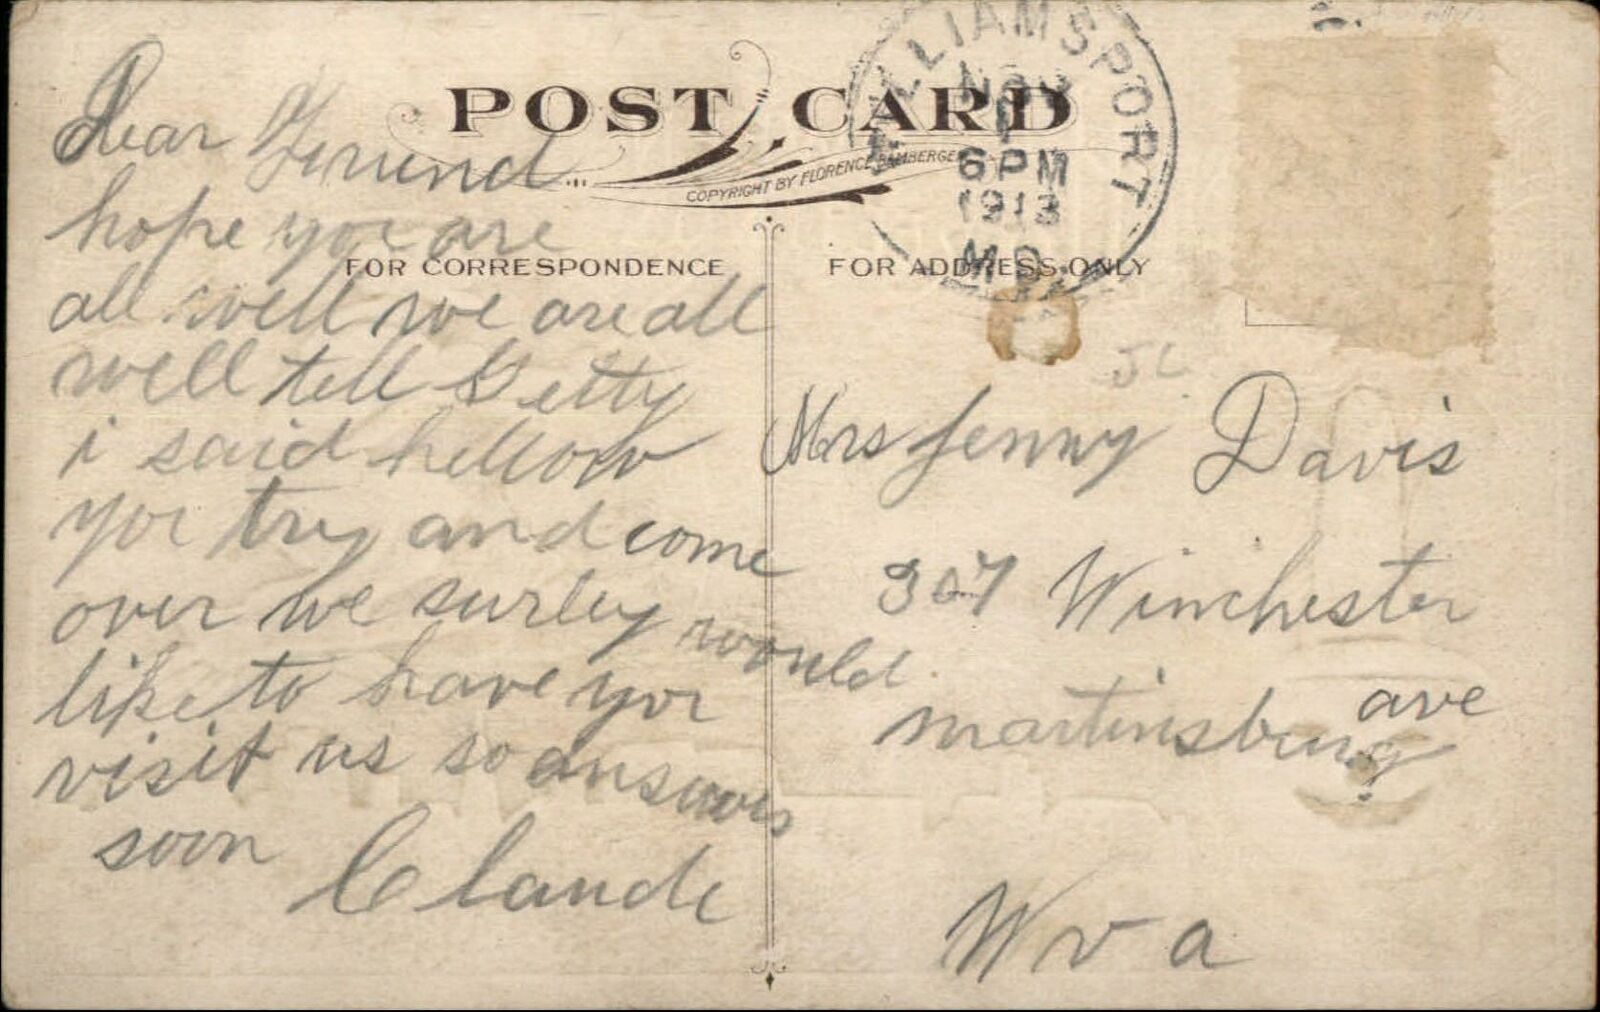 POST CARD
COPYRIGHT BY FLORENCE BAMBERGER
FOR CORRESPONDENCE
FOR ADDRESS ONLY
WILLIAMSPORT
NOV
6 PM
1913
MD.
Dear Freiend
hope you are
all well we are all
well tell Getty
i said hellow
you try and come
over we surley would
like to have you
visit us so answers
soon
Claude
JC
Mrs Jenny Davis
307 Winchester
ave
martinsburg
W v a